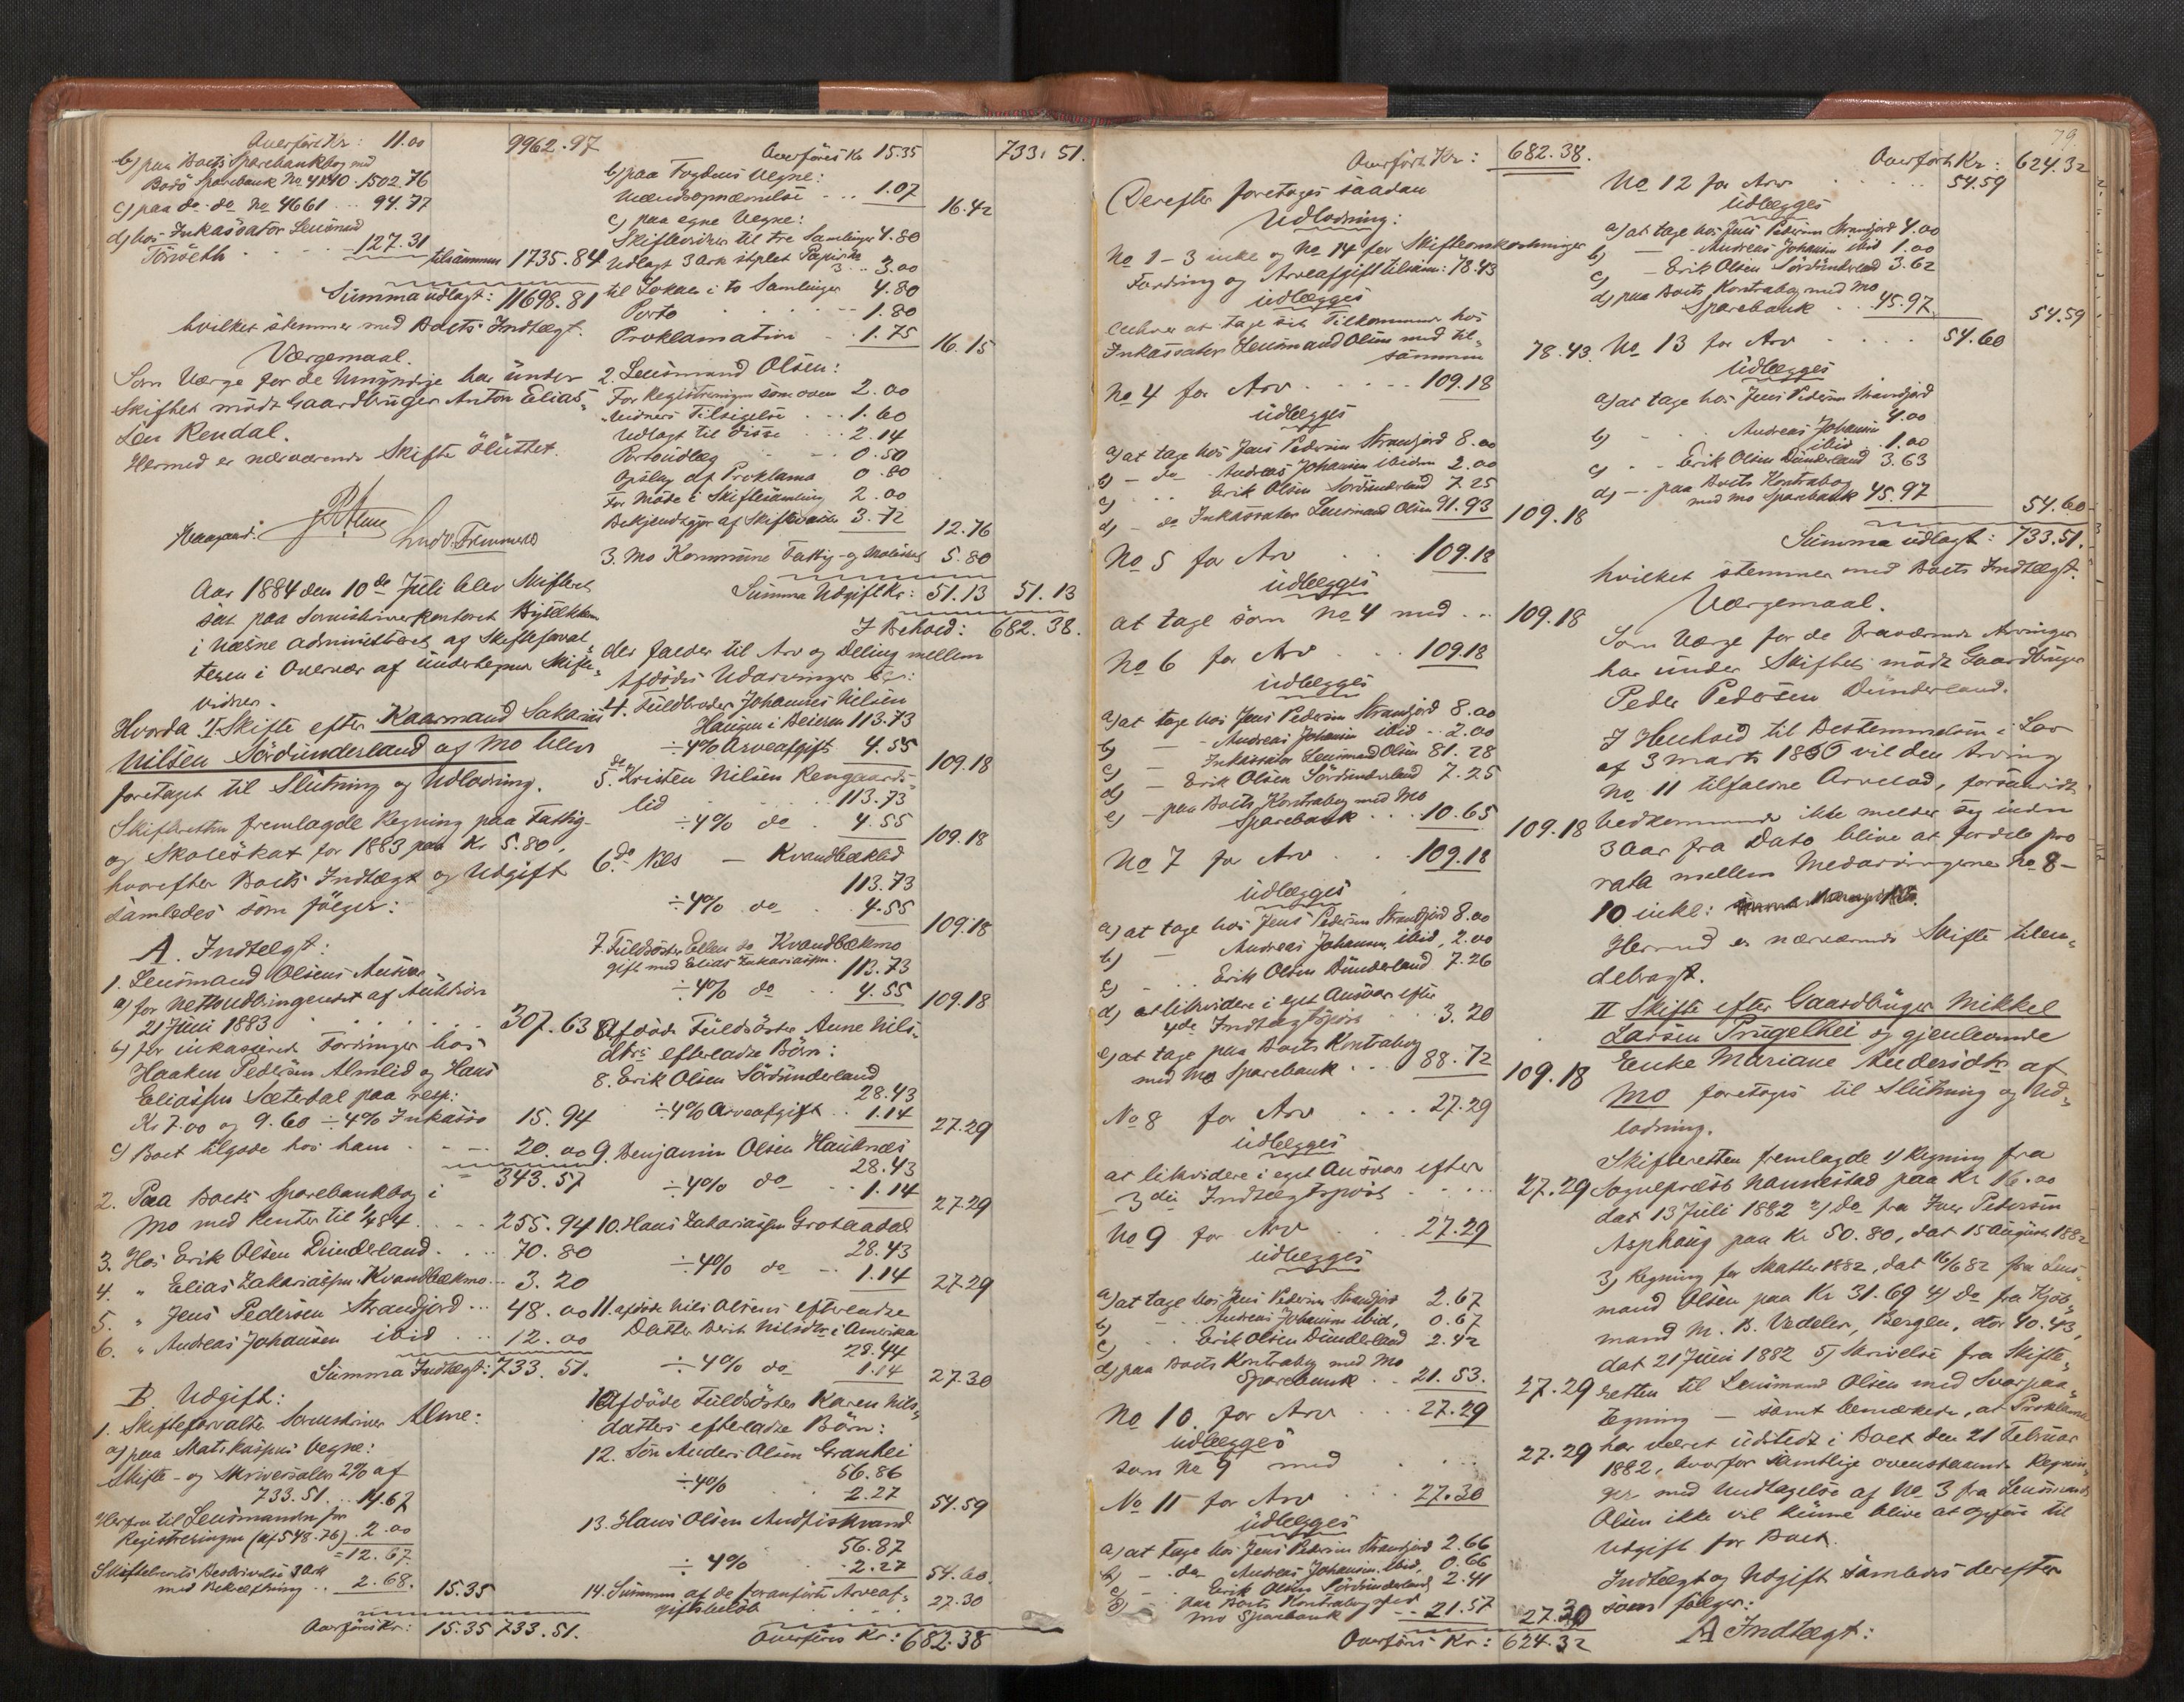 Overført Kr: 11.00 9962.97
b) paa Boets Sparebankbog med
Bodö Sparebank No 4140 . 1502.76
c) paa do do No 4661 ... 94.77
d) hos Inkassator Lensmand
127.31 tilsammen 1735.84
Summa udlagt: 11698.81
hvilket stemmer med Boets Indtægt.
Værgemaal.
Som Værge for de Umyndige har under
Skiftet mödt Gaardbruger Anton Elias-
sen Rendal.
Hermed er nærværende Skifte sluttet.
Aar 1884 den 10de Juli blev Skifteret
sat paa Sorenskriverkontoret
i Næsne administreret af Skifteforval-
teren i Overvær af undertegnede Skifte-
vidner.
Hvorda I Skifte efter Kaarmand Sakarias
Nilsen Sördunderland af Mo blev
foretaget til Slutning og Udlodning.
Skifteretten fremlagde Regning paa Fattig-
og Skoleskat for 1883 paa Kr 5.80,
hvorefter Boets Indtægt og Udgift
samledes som følger:
A. Indtægt:
1. Lensmand Olsens Ansvar
a) for Nettoudbringendet af Auktion
21 Juni 1883 . . . 307.63
b) for inkasserede Fordringer hos
Haaken Pedersen Almlid og Hans
Eliassen Sæterdal paa resp:
Kr 7.00 og 9.60 ÷ 4% Inkasso 15.94
c) Boet tilgode hos ham . - - 20.00
343.57
2. Paa Boets Sparebankbog i
Mo med Renter til 1/4 84 . . . 255.94
3. Hos Erik Olsen Dunderland . . . 70.80
4. " Elias Zakariassen Kvandbækmo ... 3.20
5. " Jens Pedersen Strandjord ... 48.00
6. " Andreas Johansen ibid ... 12.00
Summa Indtægt: 733.51.
B. Udgift:
1. Skifteforvalter Sorenskriver Alme:
a) paa Statskassens Vegne:
Skifte- og Skriversalær 2% af
733.51 ... 14.67
Herfra til Lensmanden for
Registreringen (af 548.76) . 2.00
= 12.67
Skiftebrevets Beskrivelse 3 Ark
med Bekræftning .. 2.68. 15.35
Overføres Kr: 15.35 733.51.
Overføres Kr 15.35 733.51.
b) paa Fogdens Vegne:
Mændsopnævnelse ... 1.07 16.42
c) paa egne Vegne:
Skiftevidner til tre Samlinger 4.80
Udlagt 3 Ark stplet Papir
3.00
til Lokale i to Samlinger 4.80
Porto . . . -- 1.80
Proklamation . 1.75 16.15
2. Lensmand Olsen:
For Registreringen som oven 2.00
" Vidners Tilsigelse . -- 1.60
Udlagt til disse . . 2.14
Portoudlæg . . 0.50
Opslag af Proklama 0.80
For Møde i Skiftesamling 2.00
Bekjendtgjør af Skifte 3.72 12.76
3. Mo Kommune Fattig- og Skoleskat 5.80
Summa Udgift Kr: 51.13 51.13
I Behold: 682.38.
der falder til Arv og Deling mellem
Afdödes Udarvinger
4. Fuldbroder Johannes Nilsen
Haugen i Beieren 113.73
÷ 4% Arveafgift 4.55 109.18
5. do Kristen Nilsen Rengaards-
lid . . . 113.73
÷ 4% do . 4.55 109.18
6. do Nils — Kvandbæklid
113.73
÷ 4% do . 4.55 109.18
7. Fuldsöster Ellen do Kvandbækmo
gift med Elias Zakariassen. 113.73
÷ 4% do . . 4.55 109.18
Afdöde Fuldsöster Anne Nils-
dtrs efterladte Börn:
8. Erik Olsen Sördunderland
28.43
÷ 4% Arveafgift .. 1.14 27.29
9. Benjamin Olsen Hauknæs
28.43
÷ 4% do .. 1.14 27.29
10. Hans Zakariassen Grotaadal
28.43
÷ 4% do -- 1.14 27.29
11. afdöde Nils Olsens efterladte
Datter Berit Nilsdtr i Amerika
28.44
÷ 4% do 1.14 27.30
Afdöde Fuldsöster Karen Nils-
datters efterladte Börn:
12. Sön Anders Olsen Granhei
56.86
÷ 4% . . 2.27 54.59
13. Hans Olsen Andfiskvand
56.87
÷ 4% . . 2.27 54.60.
14. Summen af de foranførte Arveaf-
giftsbeløb . . . 27.30
Overføres Kr: 682.38
Overført Kr: 682.38.
Derefter foretages saadan
Udlodning:
No 1-3 inkl og No 14 for Skifteomkostninger
Fordring og Arveafgift tilsam: 78.43
udlægges
enhver at tage sit Tilkommende hos
Inkassator Lensmand Olsen med til-
sammen 78.43.
No 4 for Arv . . . . -- 109.18
udlægges
a) at tage hos Jens Pedersen Strandjord 8.00
b) - do - Andreas Johansen ibidem 2.00
c) .. Erik Olsen Sördunderland 7.25
d) - do Inkassator Lensmand Olsen 91.93 109.18
No 5 for Arv . . . 109.18
udlægges
at tage som No 4 med .. 109.18
No 6 for Arv . . . 109.18
udlægges
a) at tage hos Jens Pedersen Strandjord 8.00
b) — - Andreas Johansen ibid .. 2.00
c) — Inkassator Lensmand Olsen 81.28
d) — Erik Olsen Sördunderland 7.25
e) - paa Boets Kontrabog med Mo
Sparebank . . . 10.65 109.18
No 7 for Arv . . . 109.18
udlægges
a) at tage hos Jens Pedersen Strandjord 8.00
b) — Andreas Johansen, ibid, 2.00
c) - .. Erik Olsen Dunderland 7.26
d) at likvidere i eget Ansvar efter
4de Indtægtspost . . 3.20
e) at tage paa Boets Kontrabog
med Mo Sparebank . . . 88.72 109.18
No 8 for Arv . . . . 27.29
udlægges
at likvidere i eget Ansvar efter
3die Indtægtspost . . . . 27.29
No 9 for Arv . . . 27.29
udlægges
a) at tage hos Jens Pedersen Strandjord 2.67
b) - .. Andreas Johansen ibid, 0.67
c) .. Erik Olsen Dunderland 2.42
d) paa Boets Kontrabog med Mo
Sparebank .. 21.53. 27.29
No 10 for Arv . . . 27.29
udlægges
som No 9 med . . . 27.29
No 11 for Arv . . . 27.30
udlægges
a) at tage hos Jens Pedersen Strandjord 2.66
b) - . do Andreas Johansen ibid, 0.66
c) - . Erik Olsen Sördunderland 2.41
d) - paa Boets Kontrabog med
Mo Sparebank . -- 21.57 27.30
Overføres Kr: 624.32
79.
Overført Kr: 624.32
No 12 for Arv . . . . 54.59
udlægges
a) at tage hos Jens Pedersen Strandjord 4.00
b) — - Andreas Johansen ibid 1.00
c) — Erik Olsen Sördunderland 3.62
d) paa Boets Kontrabog med Mo
Sparebank . . 45.97 54.59
No 13 for Arv . . . . 54.60
udlægges
a) at tage hos Jens Pedersen Strandjord
4.00
b) - . Andreas Johansen
ibid . 1.00
c) - - Erik Olsen Dunderland 3.63
d) - . paa Boets Kontrabog
med Mo Sparebank 45.97 54.60
Summa udlagt: 733.51.
hvilket stemmer med Boets Indtægt.
Værgemaal.
Som Værge for de fraværende Arvinger
har under Skiftet mödt Gaardbruger
Peder Pedersen Dunderland.
I Henhold til Bestemmelsen i Lov
af 3 marts 1860 vil den Arving
No 11 tilfaldne Arvelod, forsaavidt
vedkommende ikke melder sig inden
3 Aar fra Dato blive at fordele pro
rata mellem Medarvingerne No 8-
10 inkl:
Hermed er nærværende Skifte tilen-
debragt.
II Skifte efter Gaardbruger Mikkel
Larsen Prugelhei og gjenlevende
Enke Mariane Andersdtr af
Mo foretoges til Slutning og Ud-
lodning.
Skifteretten fremlagde 1) Regning fra
Sognepræst Nannestad paa Kr 16.00
dat 13 Juli 1882 2) do fra Iver Pedersen
Asphaug paa Kr 50.80, dat 15 August 1882
3) Regning for Skatter 1882, dat 16/6 82 fra Lens-
mand Olsen paa Kr 31.69 4) do fra Kjøb-
mand M. B. Vedeler, Bergen, stor 40.43,
dat 21 Juni 1882 5) Skrivelse fra Skifte-
retten til Lensmand Olsen med Svarpaa-
tegning — samt bemærkede, at Proklama
har været udstedt i Boet den 21 Februar
1882, hvorfor samtlige ovenstaaende Regnin-
ger med Undtagelse af No 3 fra Lensmand
Olsen ikke vil kunne blive at opføre til
Udgift for Boet.
Indtægt og Udgift samledes derefter
som følger:
A Indtægt: